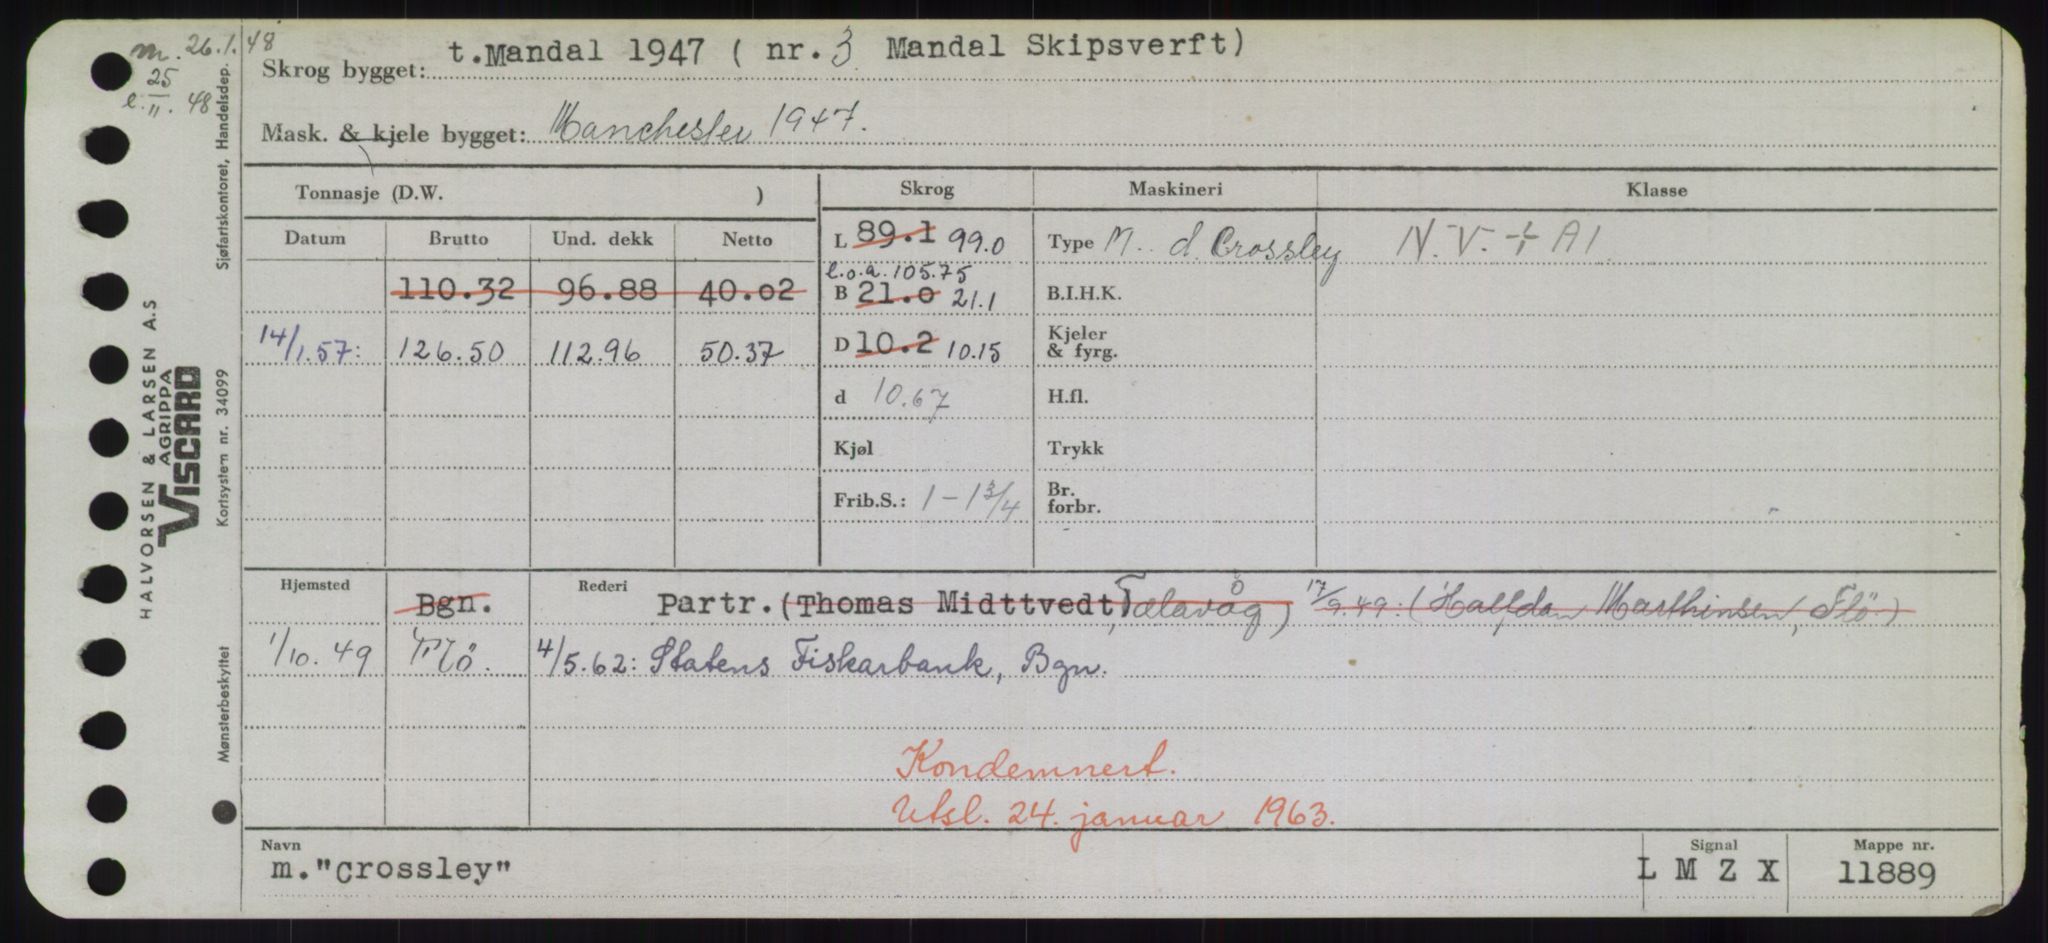 m. 26.1.48
25
e. 11. 48
Skrog bygget: t.Mandal 1947 ( nr. 3 Mandal Skipsverft)
Mask. & kjele bygget: Manchester 1947.
Tonnasje (D.W. )
Skrog Maskineri Klasse
Datum Brutto Und. dekk Netto
L 89.1 99.0 Type M. d. Crossley N.V. + A1
l.o.a. 105.75
110.32 96.88 40.02 B 21.0 21.1 B.I.H.K.
14/1.57: 126.50 112.96 50.37 D 10.2 10.15 Kjeler
& fyrg.
d 10.67 H.fl.
Kjøl Trykk
Frib.S.: 1 - 1 3/4 Br.
forbr.
Hjemsted Rederi
Bgn. Partr. (Thomas Midttvedt, Telavåg) 17/9.49: (Halfdan Marthinsen, Flö)
1/10.49 Flö. 4/5.62: Statens Fiskarbank, Bgn.
Kondemnert.
Utsl. 24. januar 1963.
Navn Signal Mappe nr.
m."Crossley" L M Z X 11889
HALVORSEN & LARSEN A.S
AGRIPPA
VISCARD
Mønsterbeskyttet Kortsystem nr. 34099 Sjøfartskontoret, Handelsdep.